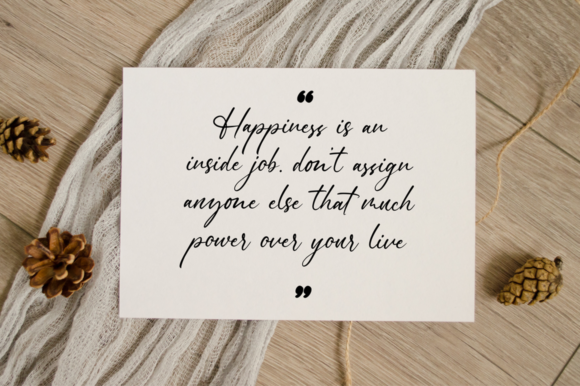 “
Happiness is an
inside job. don't assign
anyone else that much
power over your live
”